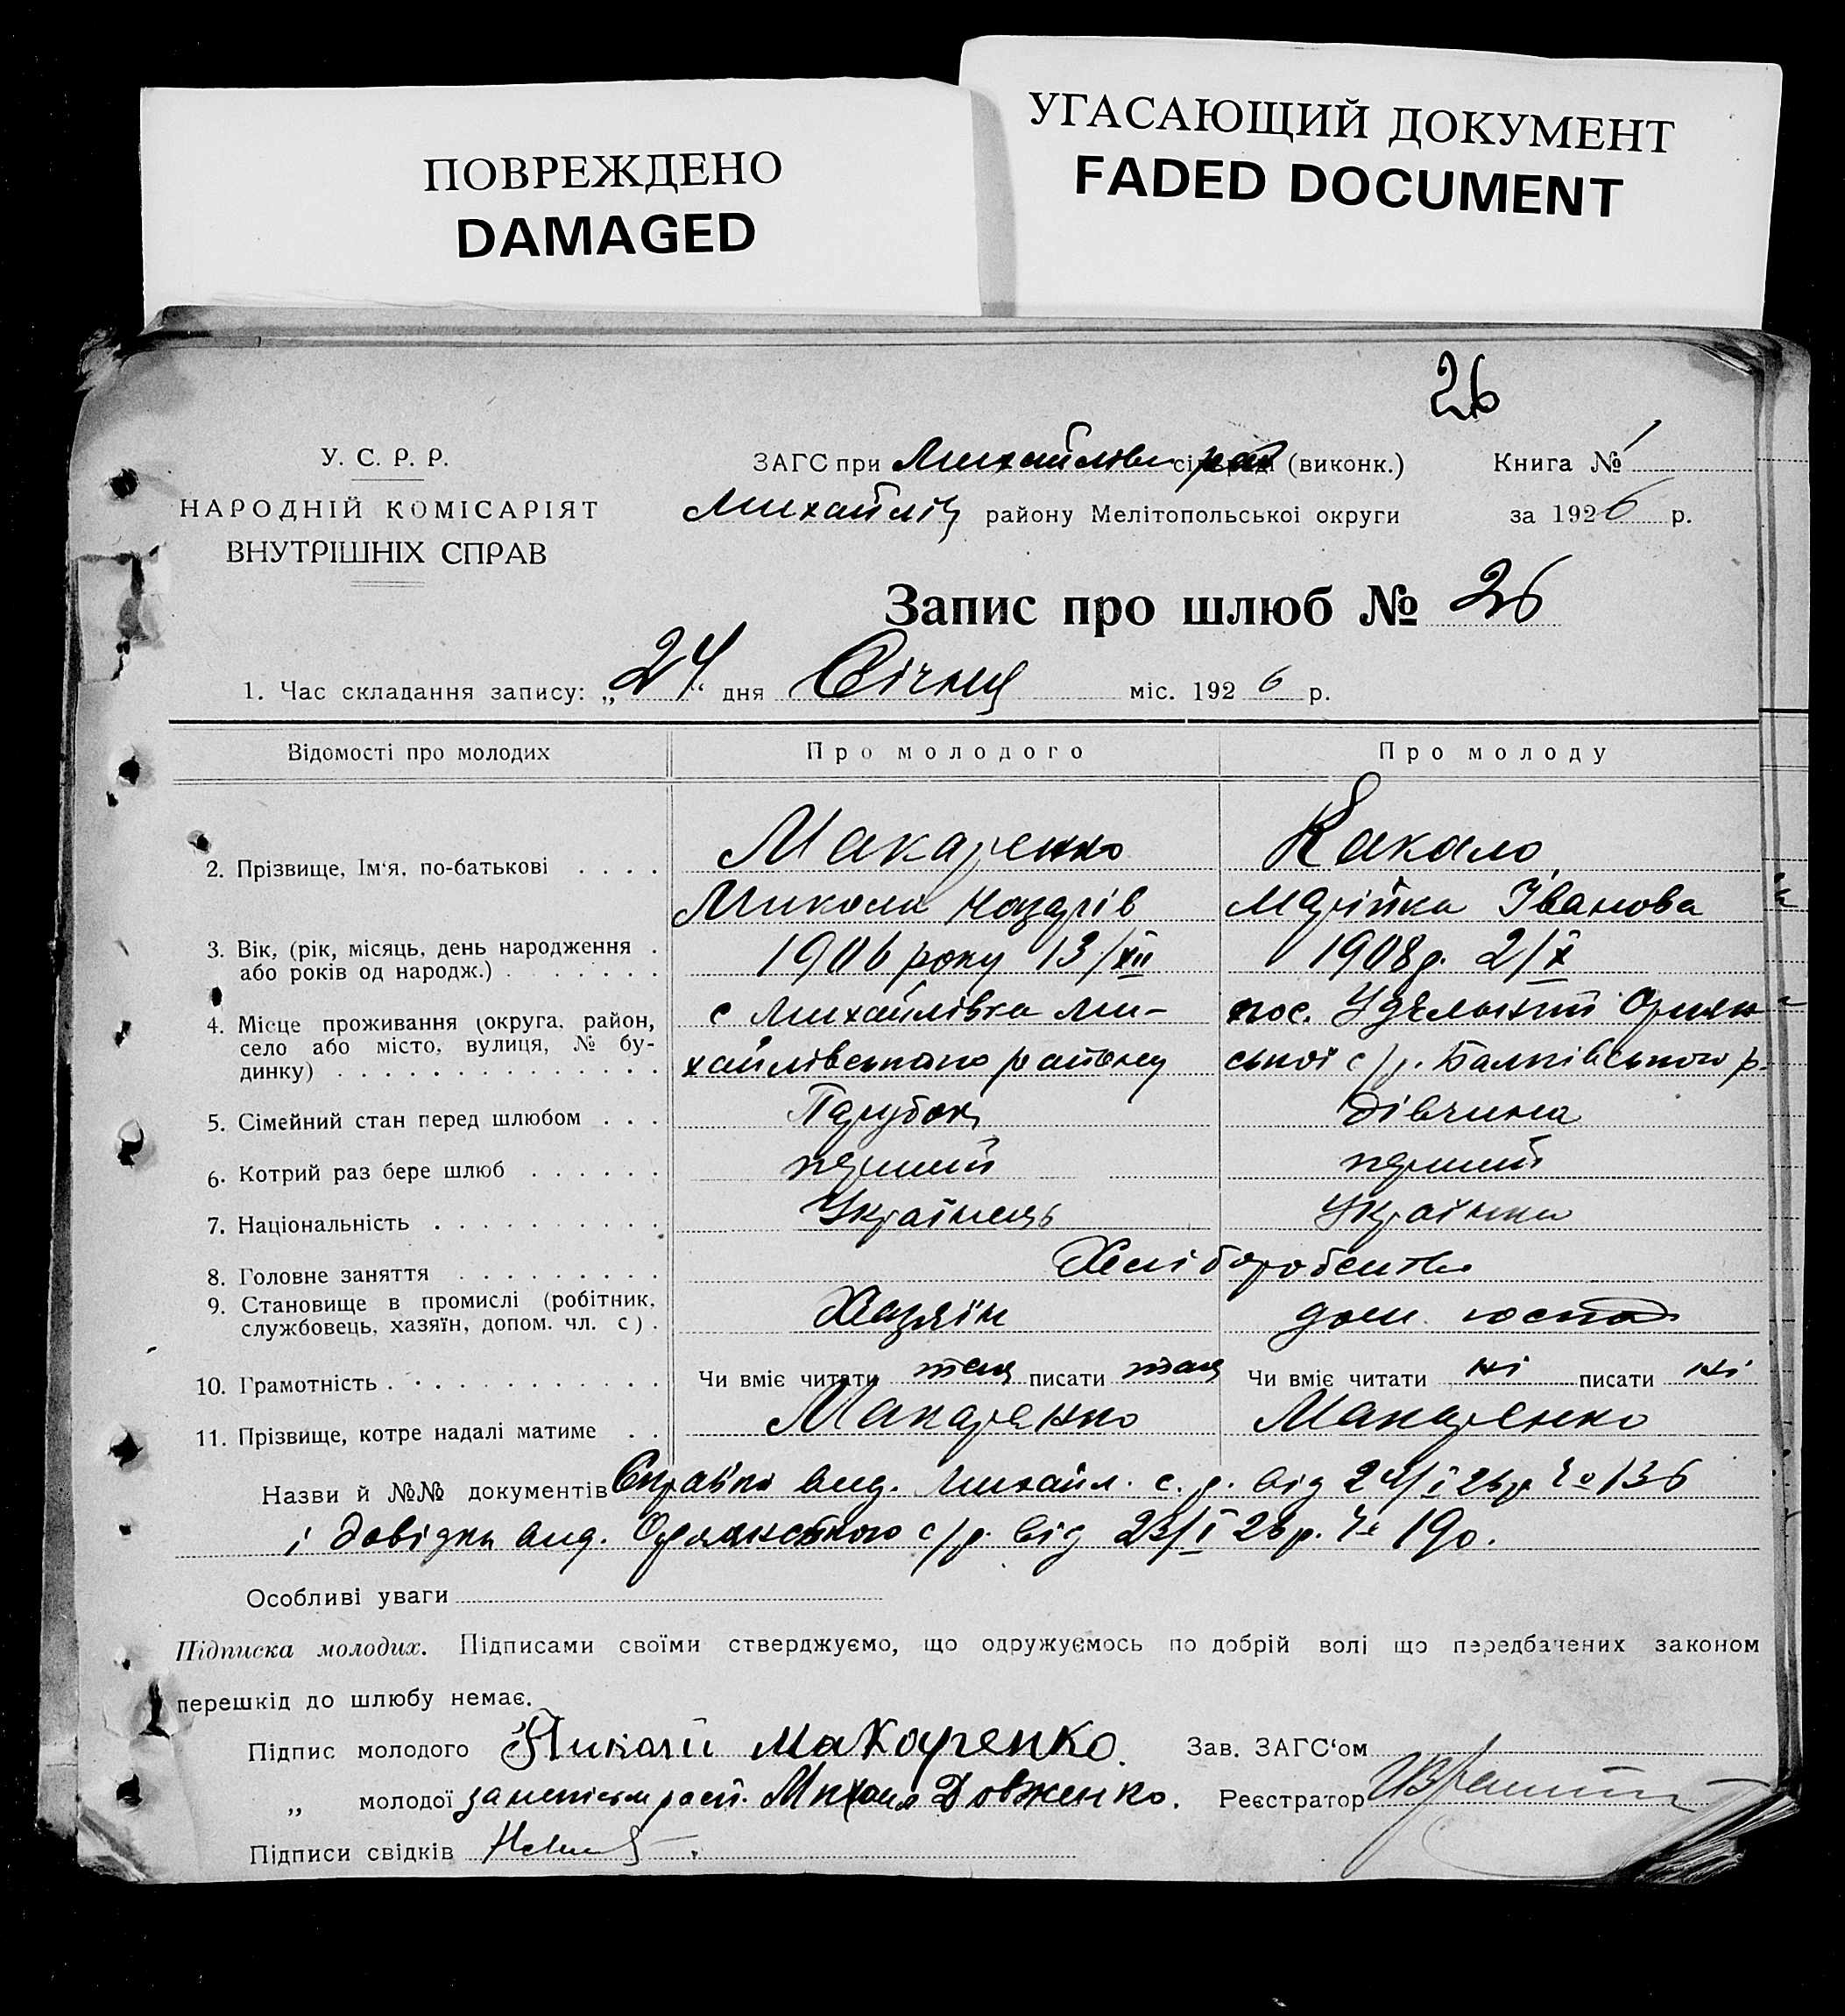 ПОВРЕЖДЕНО
DAMAGED
УГАСАЮЩИЙ ДОКУМЕНТ
FADED DOCUMENT
26
У. С. Р. Р.
НАРОДНІЙ КОМІСАРІЯТ
ВНУТРІШНІХ СПРАВ
ЗАГС при Михайлівс (виконк.)
Михайлів району Мелітопольської округи
Книга № 1
за 1926 р.
Запис про шлюб № 26
1. Час складання запису: „24“ дня Січня міс. 1926 р.
Відомості про молодих
Про молодого
Про молоду
2. Прізвище, Ім‘я, по-батькові . . . .
Макаренко
Какало
Микола
Марійка Іванова
3. Вік, (рік, місяць, день народження .
або років од народж.) . . . . . . .
1906 року 13/XII
1908 р. 2/X
4. Місце проживання (округа, район,
село або місто, вулиця, № бу-
динку) . . . . . . . . . . . . . .
с Михайлівка Ми-
хайлівського району
пос. Удельний Орлян
ської с/р. Балківського р.
5. Сімейний стан перед шлюбом . . .
Парубок
дівчина
6. Котрий раз бере шлюб . . . . . .
перший
перший
7. Національність . . . . . . . . . .
Українець
Українка
8. Головне заняття . . . . . . . . .
Хліборобство
9. Становище в промислі (робітник,
службовець, хазяїн, допом. чл. с) .
Хазяїн
дом. господ
10. Грамотність . . . . . . . . . . . .
Чи вміє читати так писати так
Чи вміє читати ні писати ні
11. Прізвище, котре надалі матиме . .
Макаренко
Макаренко
Назви й №№ документів Справка вид. Михайл. с. р. від 24/I 26 р. № 136
і довідки вид. Орлянского с/р. від 23/I 26 р. № 190.
Особливі уваги
Підписка молодих. Підписами своїми стверджуємо, що одружуємось по добрій волі що передбачених законом
перешкід до шлюбу немає.
Підпис молодого Николай Макаренко.
Зав. ЗАГС‘ом
„ молодої за неписьм расп. Михаил Довженко.
Реєстратор
Підписи свідків